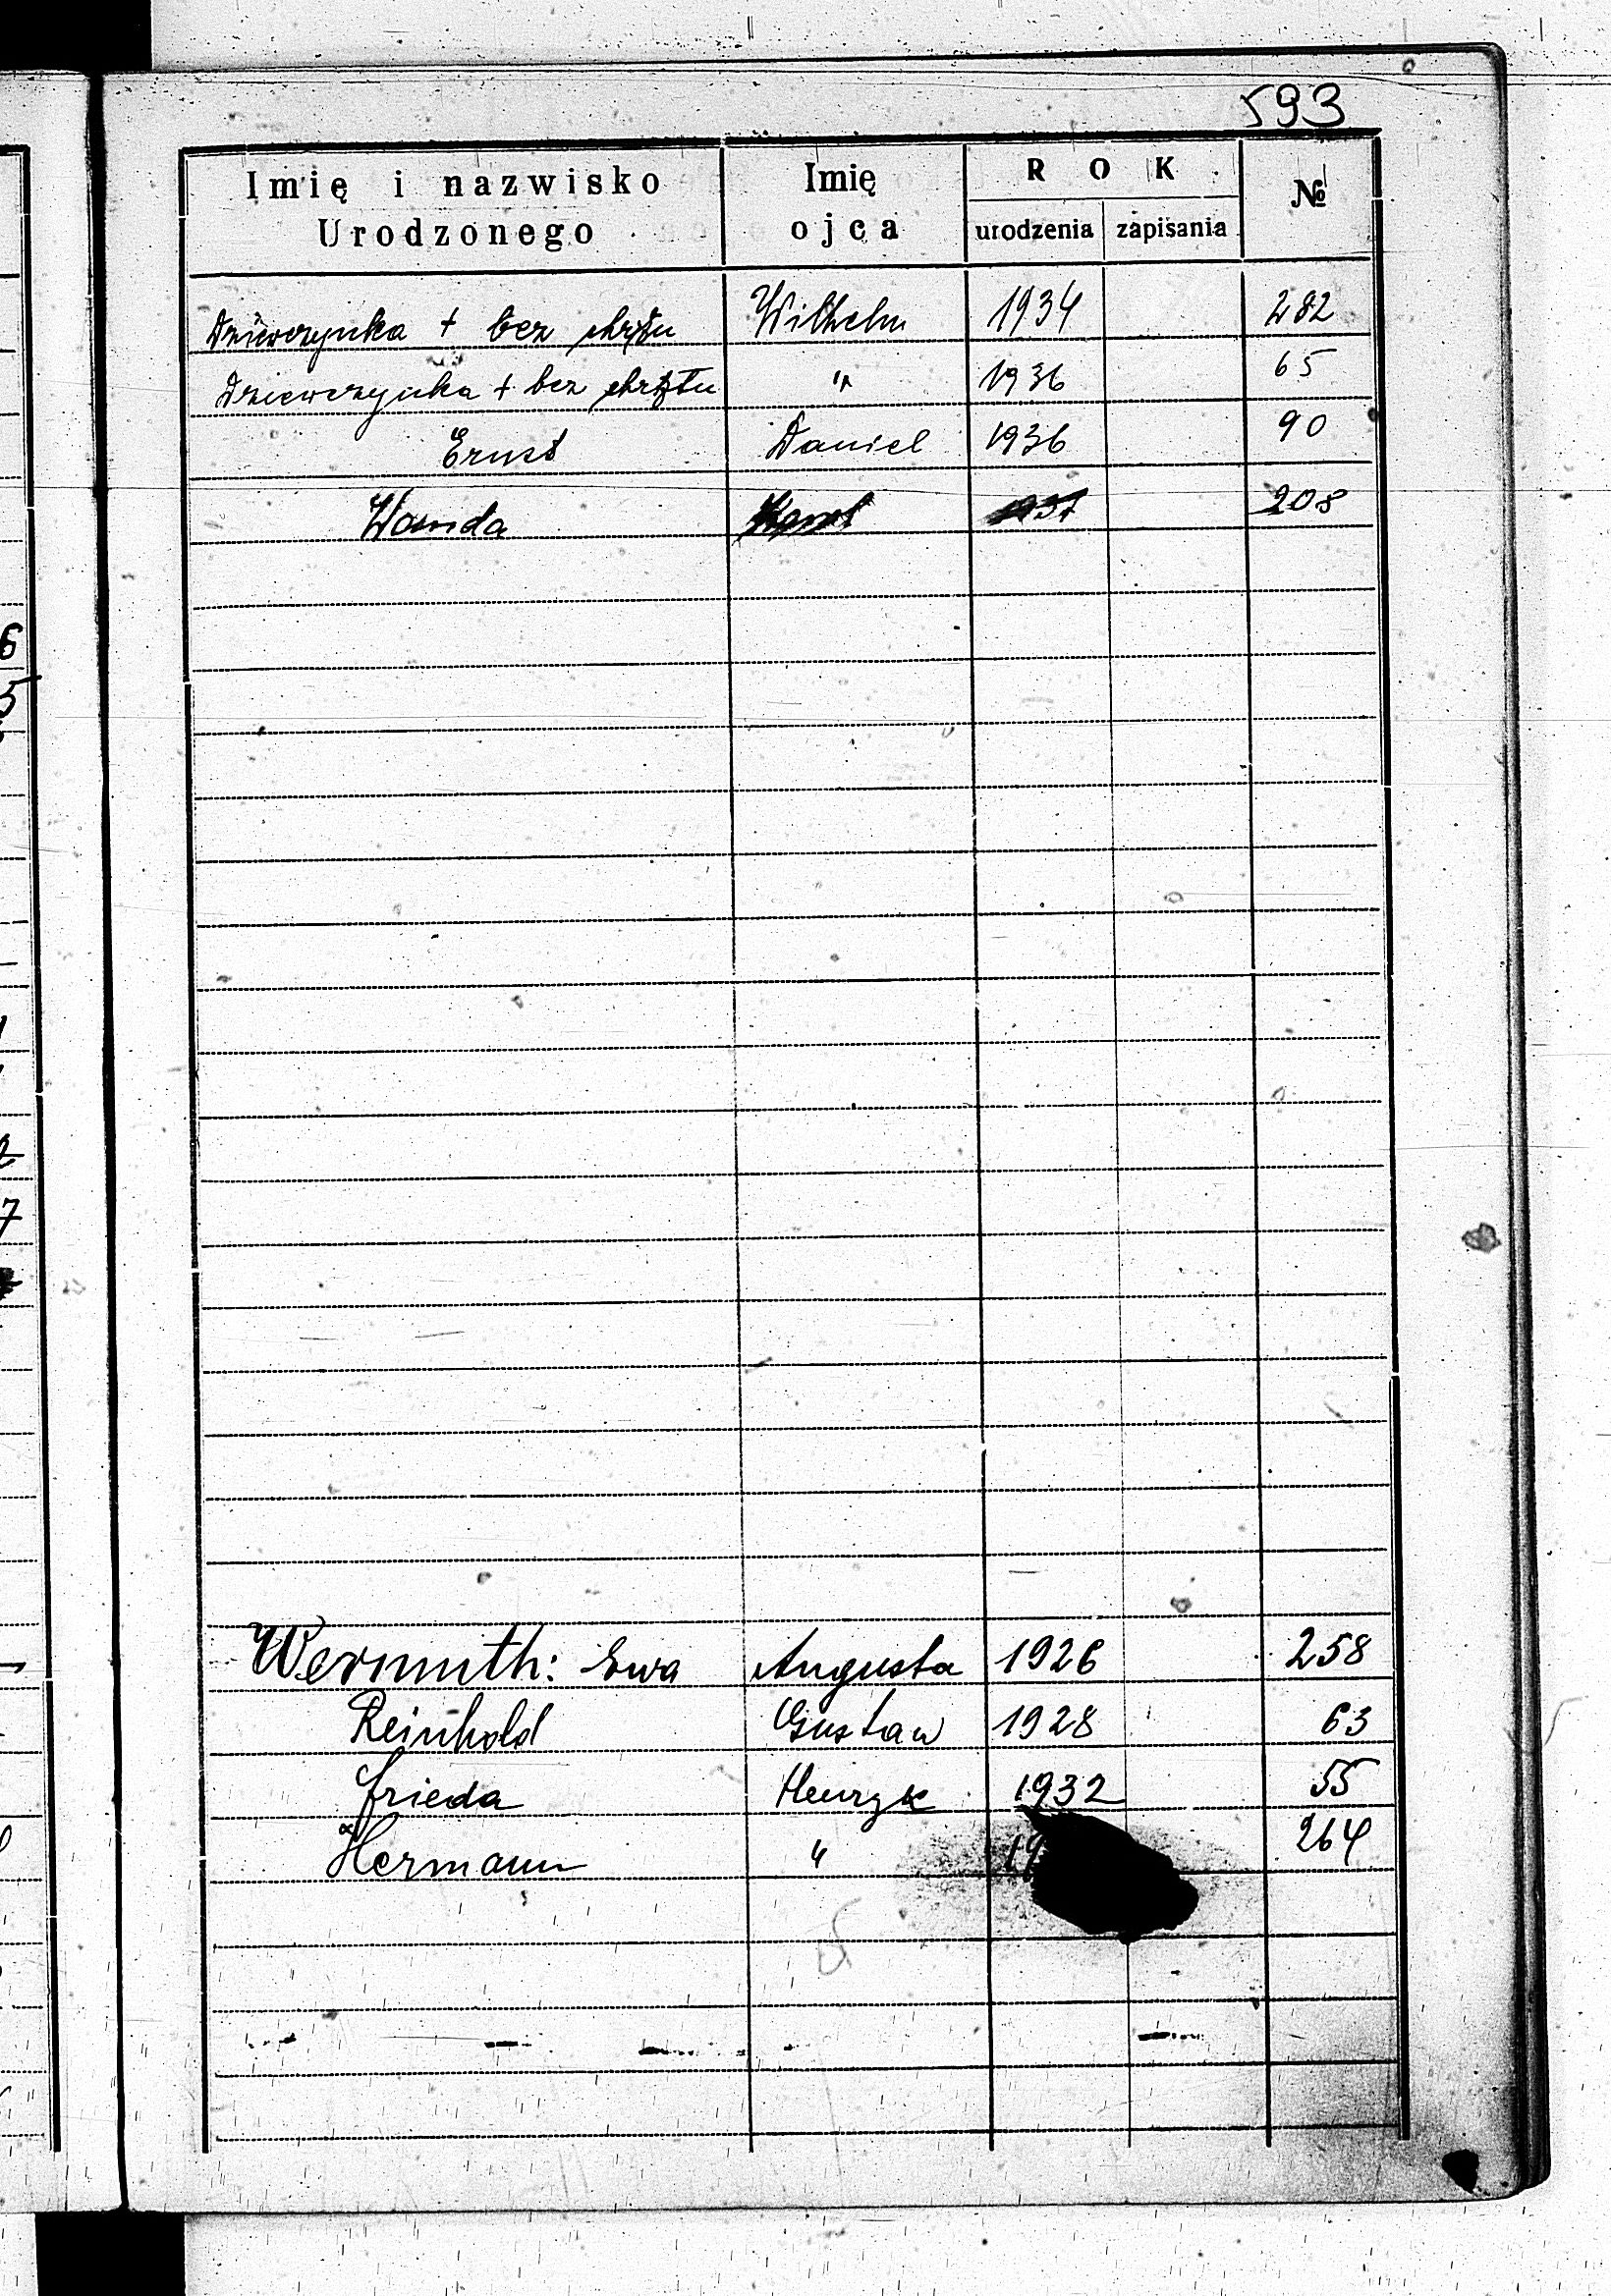 593
Imię i nazwisko Urodzonego Imię ojca ROK urodzenia zapisania №
Dziewczynka + bez chrztu Wilhelm 1934 282
Dziewczynka + bez chrztu " 1936 65
Ernst Daniel 1936 90
Wanda Karol 1937 208
Wermuth: Ewa Augusta 1926 258
Reinhold Gustaw 1928 63
Frieda Henryk 1932 55
Hermann " 19 264